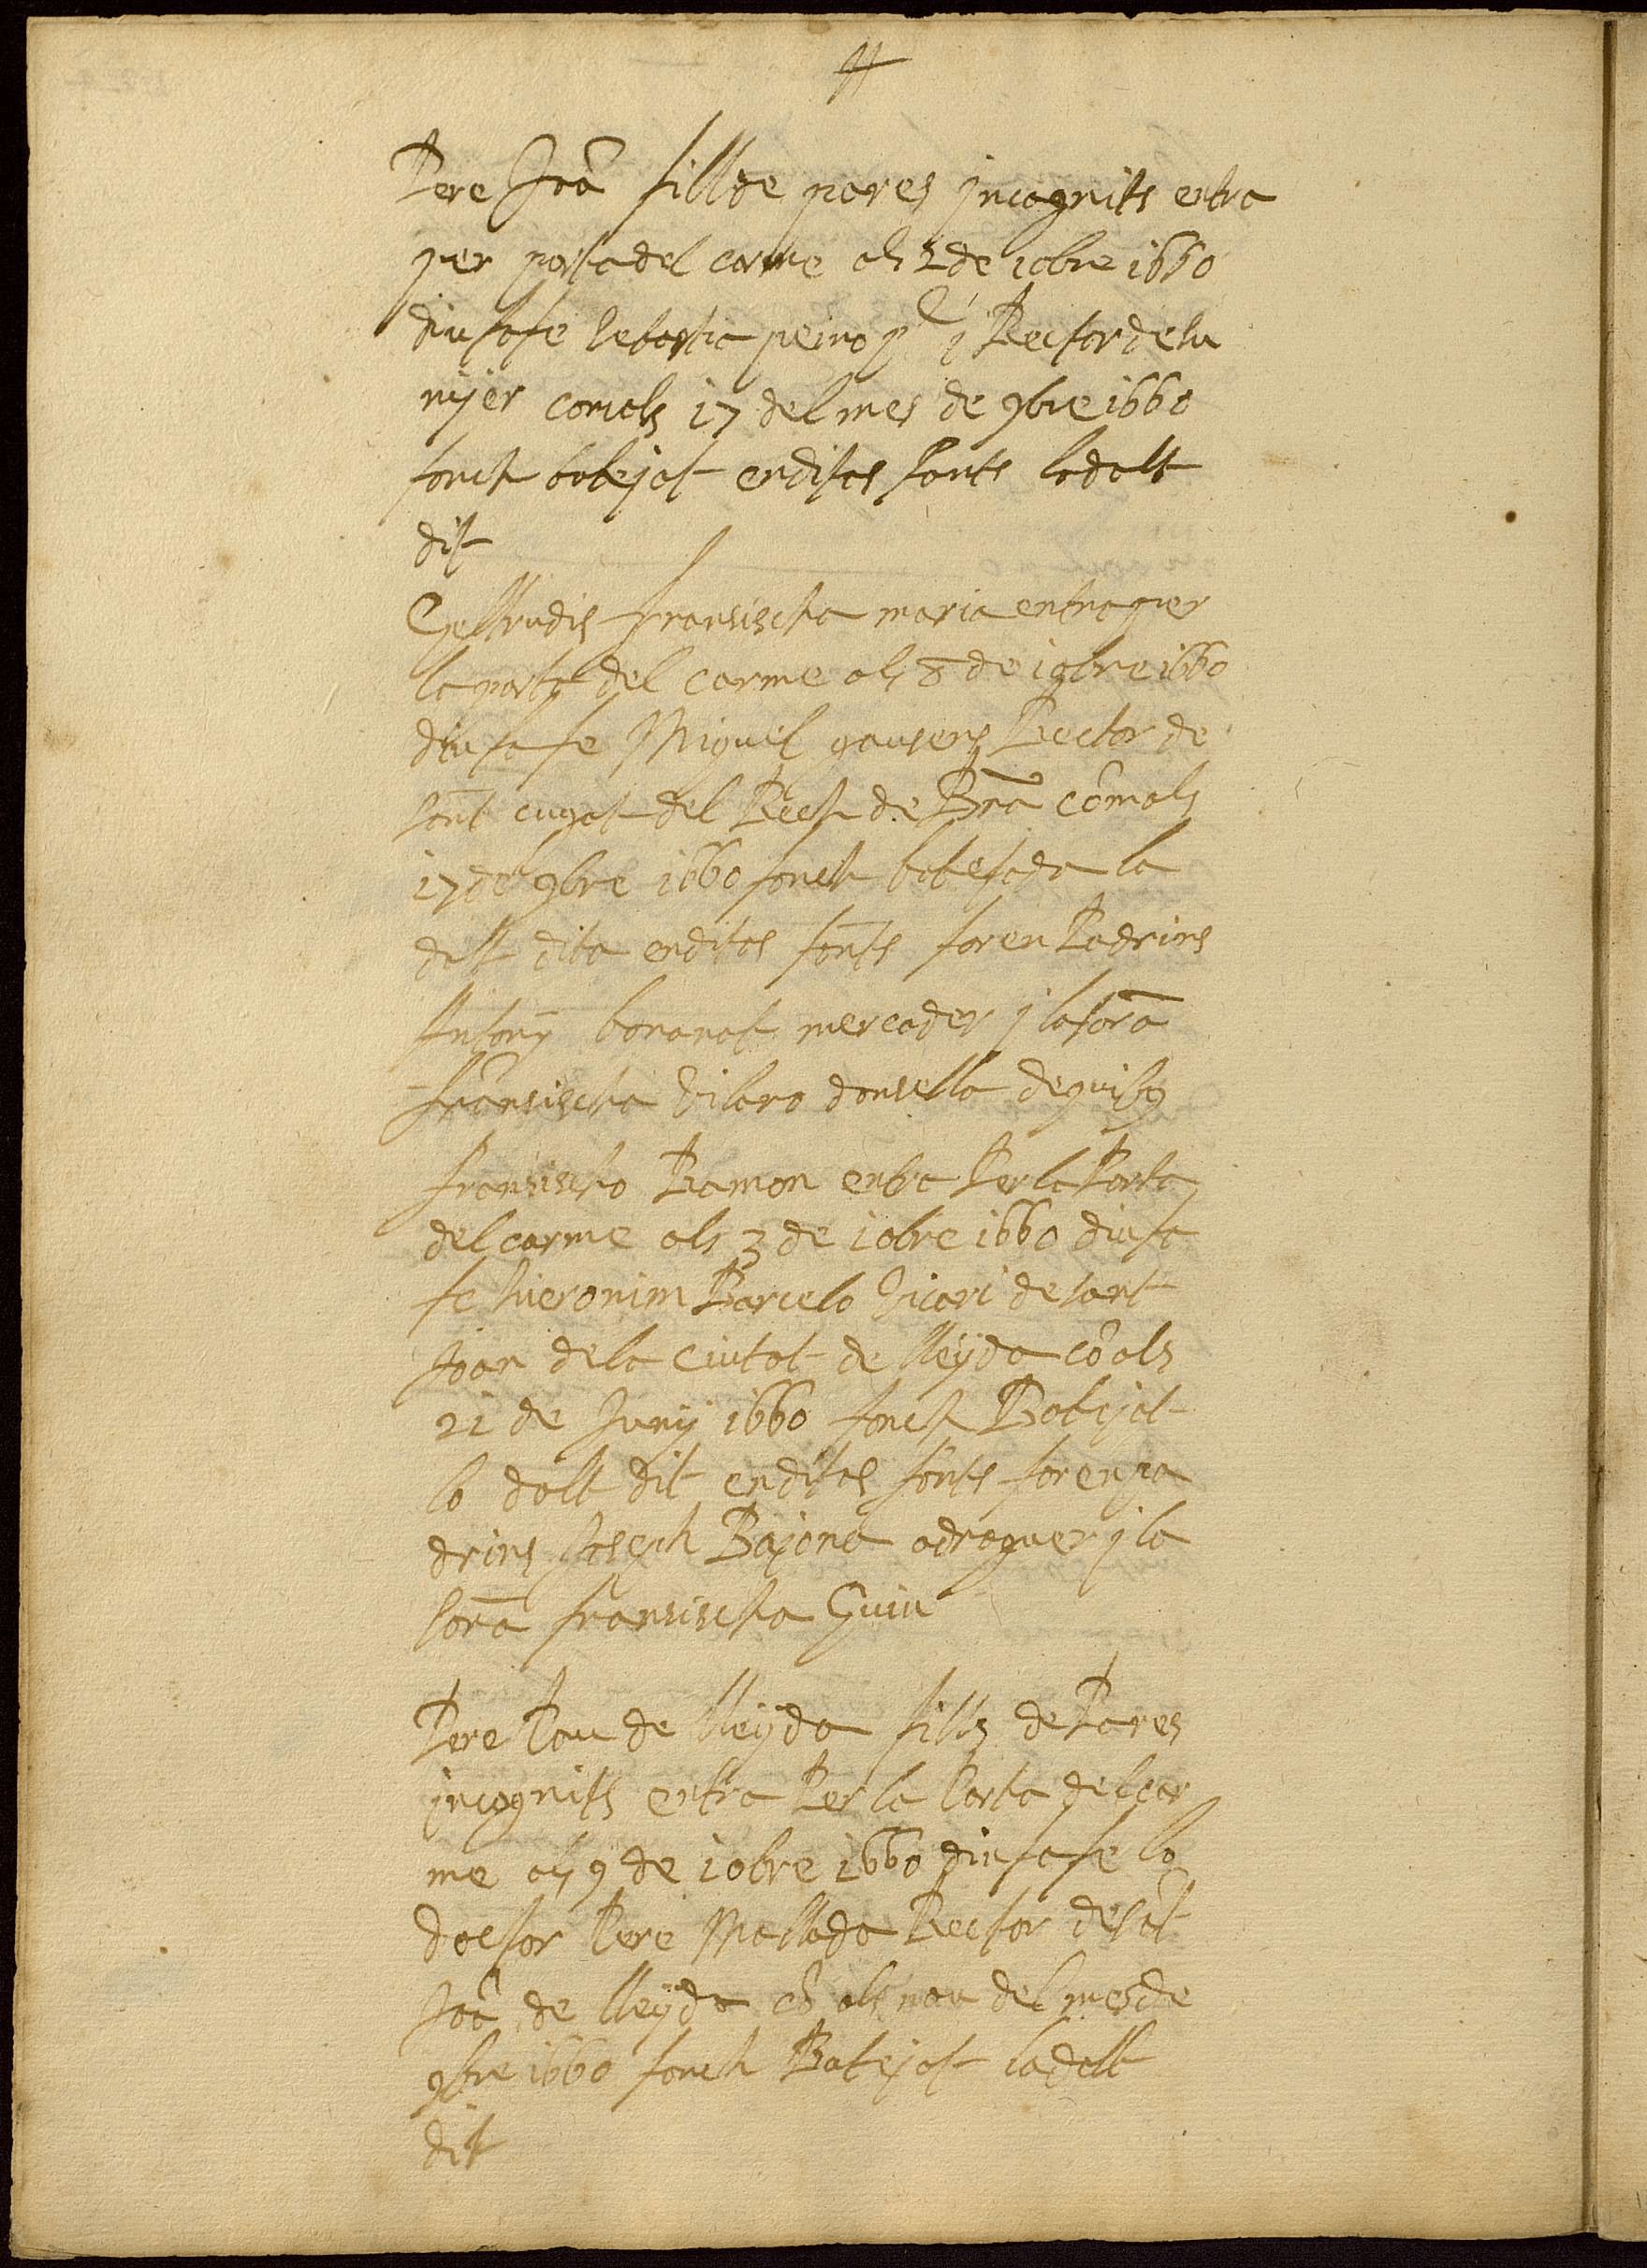 Pere Joā fill de pares jncognits entra
per porta del carme als 2 de 10bre 1660
diu sa fe Sebastia j Rector de su
nyer com als 17 del mes de 9bre 1660
fonch batejat en ditas fonts lo dalt
dit
Geltrudis fransischa maria entra per
la porta del carme als 8 de 10bre 1660
diu sa fe Miquel gausens Rector de
sant cugat del Rech de Bna com als
17 de 9bre 1660 fonch batesada la
dalt dita en ditas fonts foren Padrins
Antony bonanat mercader j la sorā
fransischa Vilaro donsella
fransischo Ramon entra Per la Porta
del carme als 3 de 10bre 1660 diu sa
fe hieronim Barcelo Vicari de sant
Joan de la Ciutat de lleyda cō als
21 de Juny 1660 fonch Batejat
lo dalt dit en ditas fonts foren pa
drins Joseph Bajona adroguer j la
sorā fransischa Guiu
Pere Pau de lleyda fills de Pares
jncognits entra Per la Porta del car
me als 9 de 10bre 1660 diu sa fe lo
doctor Pere Mallada Rector de sāt
Joā de lleyda cō als nou del mes de
9bre 1660 fonch Batejat lo dalt
dit